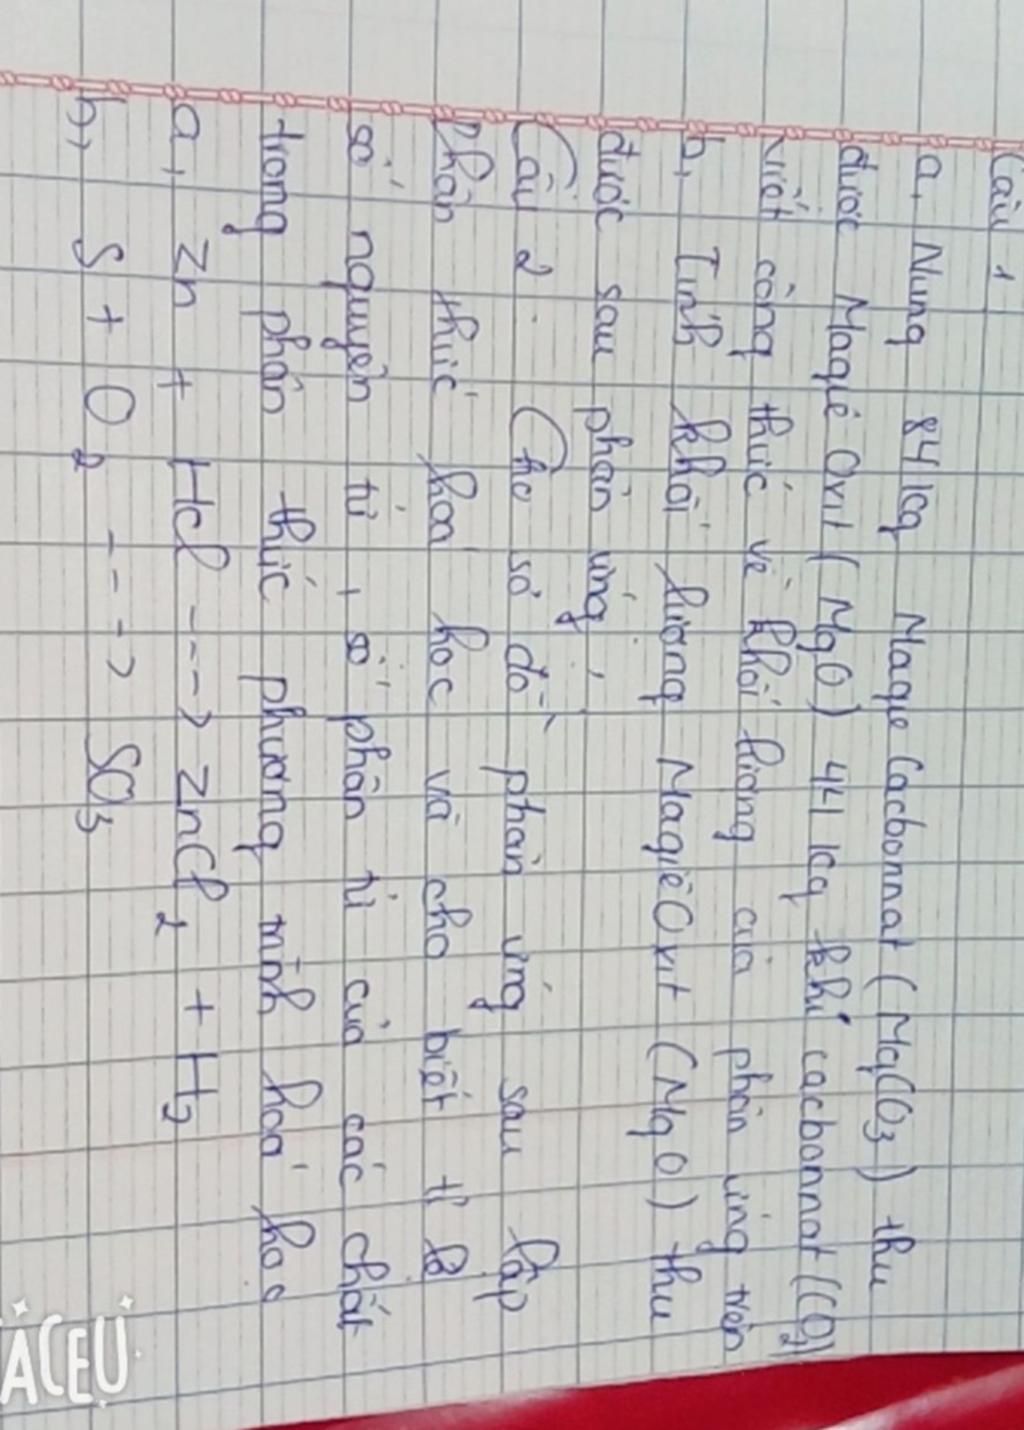 Câu 1
a, Nung 84 kg Magie Cacbonnat ( MgCO3 ) thu
được Magiê Oxit ( MgO) 44 kg khí cacbonnat (CO2)
Viết công thức về khối lượng của phản ứng trên
b, Tính khối lượng Magiê Oxit (MgO) thu
được sau phản ứng,
Câu 2. Cho sơ đồ phản ứng sau lập
Phản thức hoá học và cho biết tỉ lệ
số nguyên tử, số phân tử của các chất
trong phản thức phương trình hoá học
a, Zn + HCl ---> ZnCl2 + H2
b, S + O2 ---> SO3
ACEU